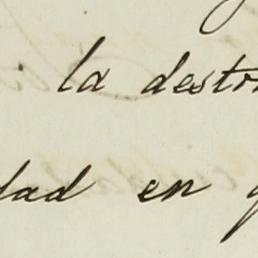 la destr
dad en g